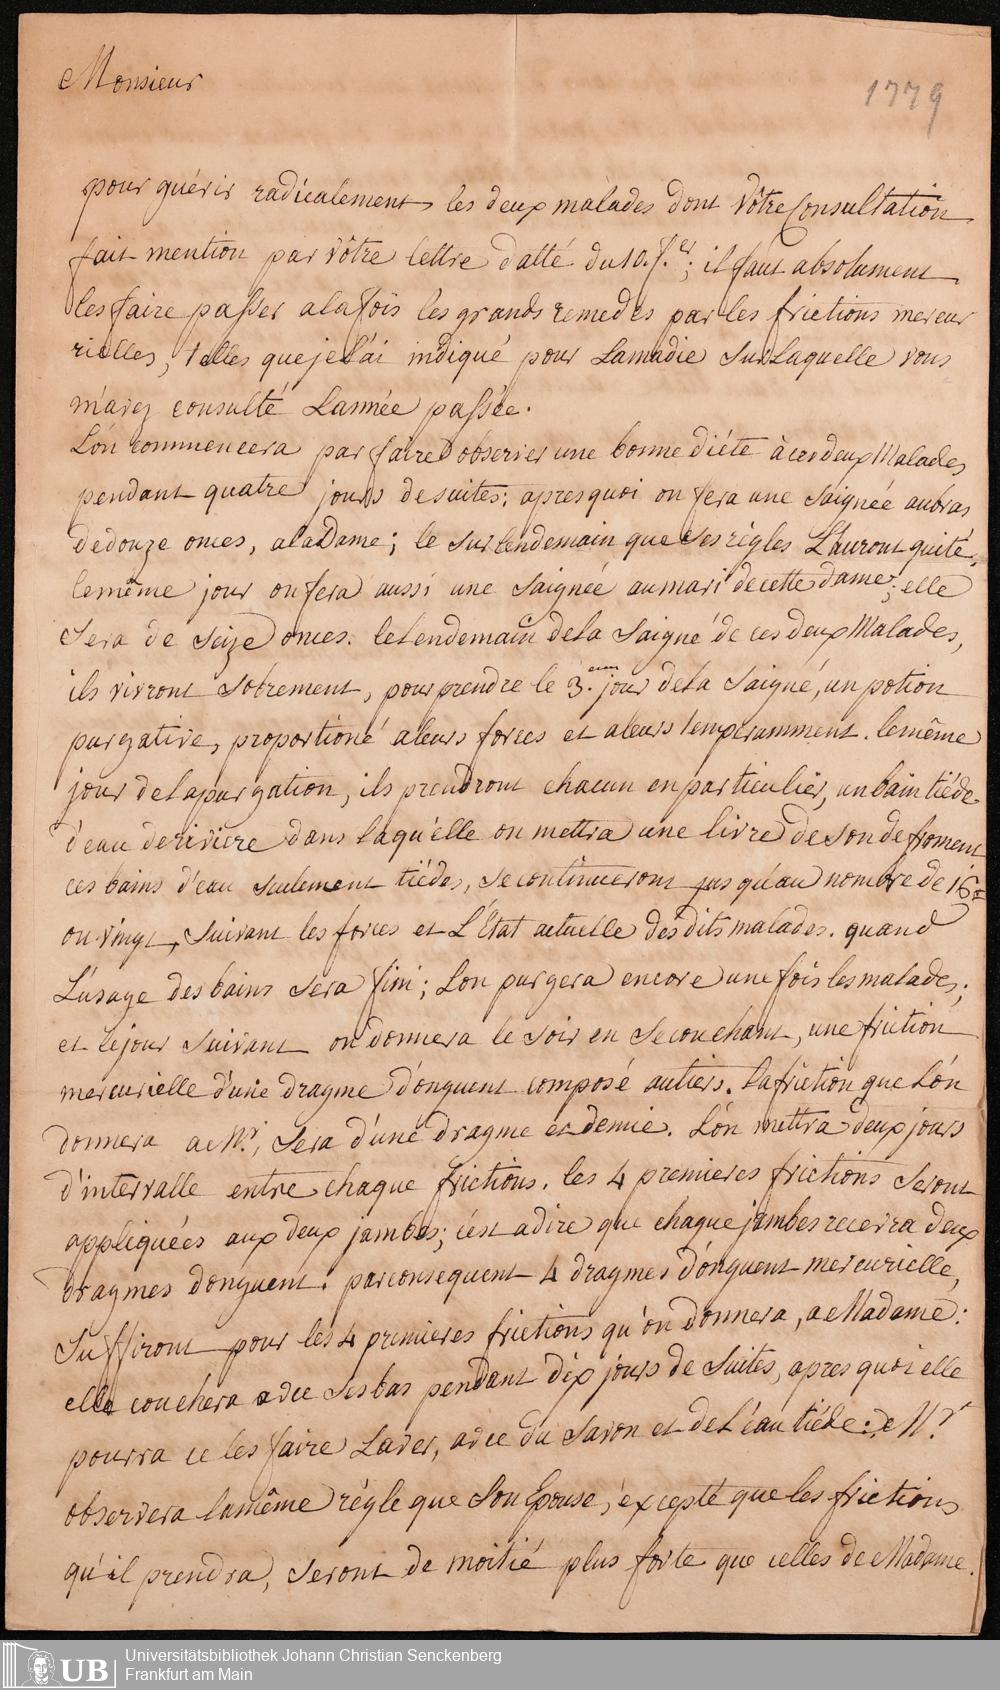 Monsieur
1779
pour guérir radicalement les deux malades dont vôtre Consultation
fait mention par vôtre lettre datté du 10. J.er; il faut absolument
les faire passer a la fois les grands remedes par les frictions mercur
rielles, telles que je l'ai indiqué pour Lamadie sur Laquelle vous
m'avez consulté Lannée passée.
L'ón commencera par faire observer une bonne diéte à ces deux Malades
pendant quatre jours de suites; apres quoi on fera une saignée au bras
de douze onces, a la Dame; le sur lendemain que ses régles L'auront quité,
le même jour on fera aussi une saignée au mari de cette dame; elle
sera de seize onces. le lendemain de la saigné de ces deux Malades,
ils vivront sobrement, pour prendre le 3.eme jour de la saigné, un potion
purgative, proportioné a leurs forces et a leurs temperamment. le même
jour de la purgation, ils prendront chacun en particulier, un bain tiéde
d'eau de riviere dans laqu'elle on mettra une livre de son de froment
ces bains d'eau seulement tiédes, se continueront jus qu'au nombre de 16
ou vingt, suivant les forces et L'État actuelle des dits malades. quand
L'usage des bains sera fini; Lon purgera encore une fois les malades;
et le jour suivant on donnera le soir en se couchant, une friction
mercurielle d'une dragme d'onguent composé au tiers. La friction que L'ón
donnera a Mr., sera d'une dragme et demie. L'ón mettra deux jours
d'intervalle entre chaque frictions. les 4 premieres frictions seront
appliqueés aux deux jambes; c'est a dire que chaque jambes recevra deux
dragmes d'onguent. par consequent 4 dragmes d'onguent mercurielle,
suffiront pour les 4 premieres frictions qu'ón donnera, a Madame:
elle couchera avec ses bas pendant dix jours de suites, apres quoi elle
pourra ce les faire Laver, avec du savon et de l'eau tiéde: Mr.
observera la même régle que son Epouse, excepté que les frictions
qu'il prendra, seront de moitié plus forte que celles de Madame.
UB
Universitätsbibliothek Johann Christian Senckenberg
Frankfurt am Main